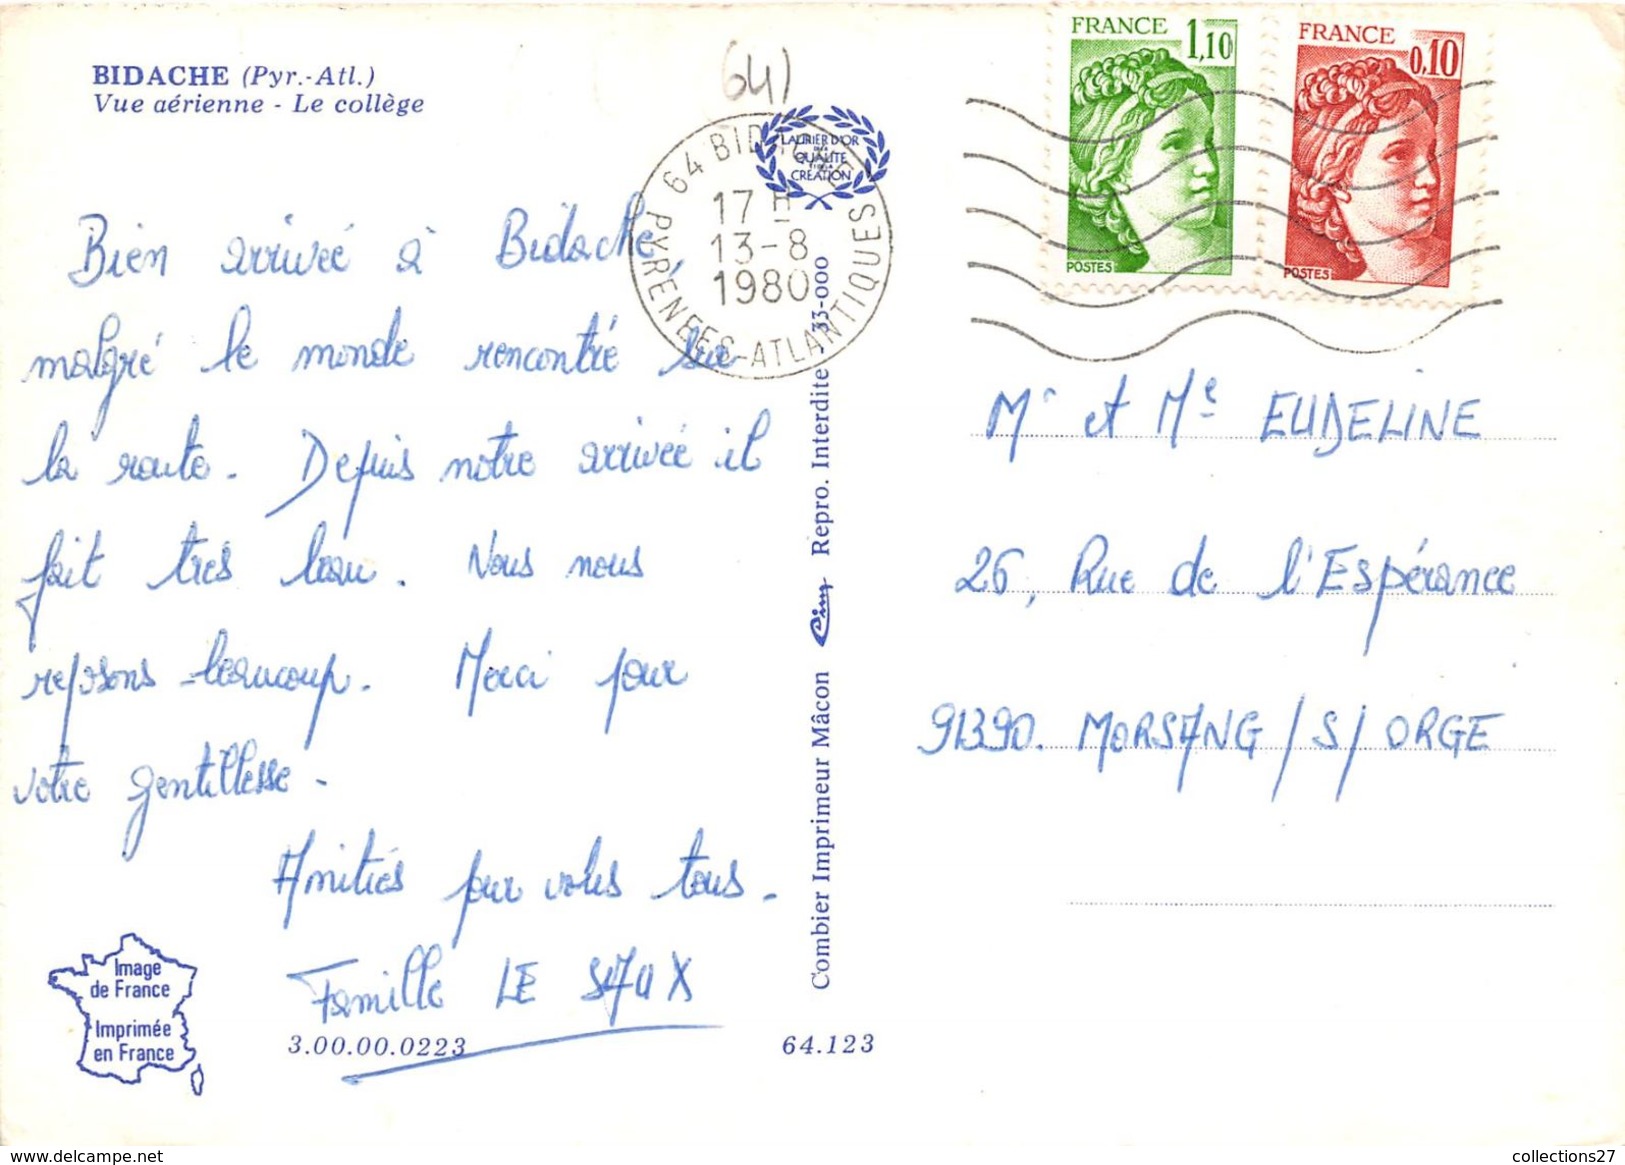 BIDACHE (Pyr.-Atl.)
Vue aérienne - Le collège
(64)
LAURIER D'OR
QUALITÉ
CRÉATION
64 BIDACHE
17 H
13-8
1980
PYRENEES-ATLANTIQUES
FRANCE
1,10
POSTES
FRANCE
0,10
POSTES
Bien arrivée à Bidache,
malgré le monde rencontré sur
la route. Depuis notre arrivée il
fait très beau. Nous nous
reposons beaucoup. Merci pour
votre gentillesse.
Amitiés pour vous tous.
Famille LE SAUX
Combier Imprimeur Mâcon Cim Repro. Interdite 33-000
Mr et Me EUDELINE
26, Rue de l'Espérance
91390. MORSANG/S/ORGE
Image
de France
Imprimée
en France
3.00.00.0223
64.123
collections27